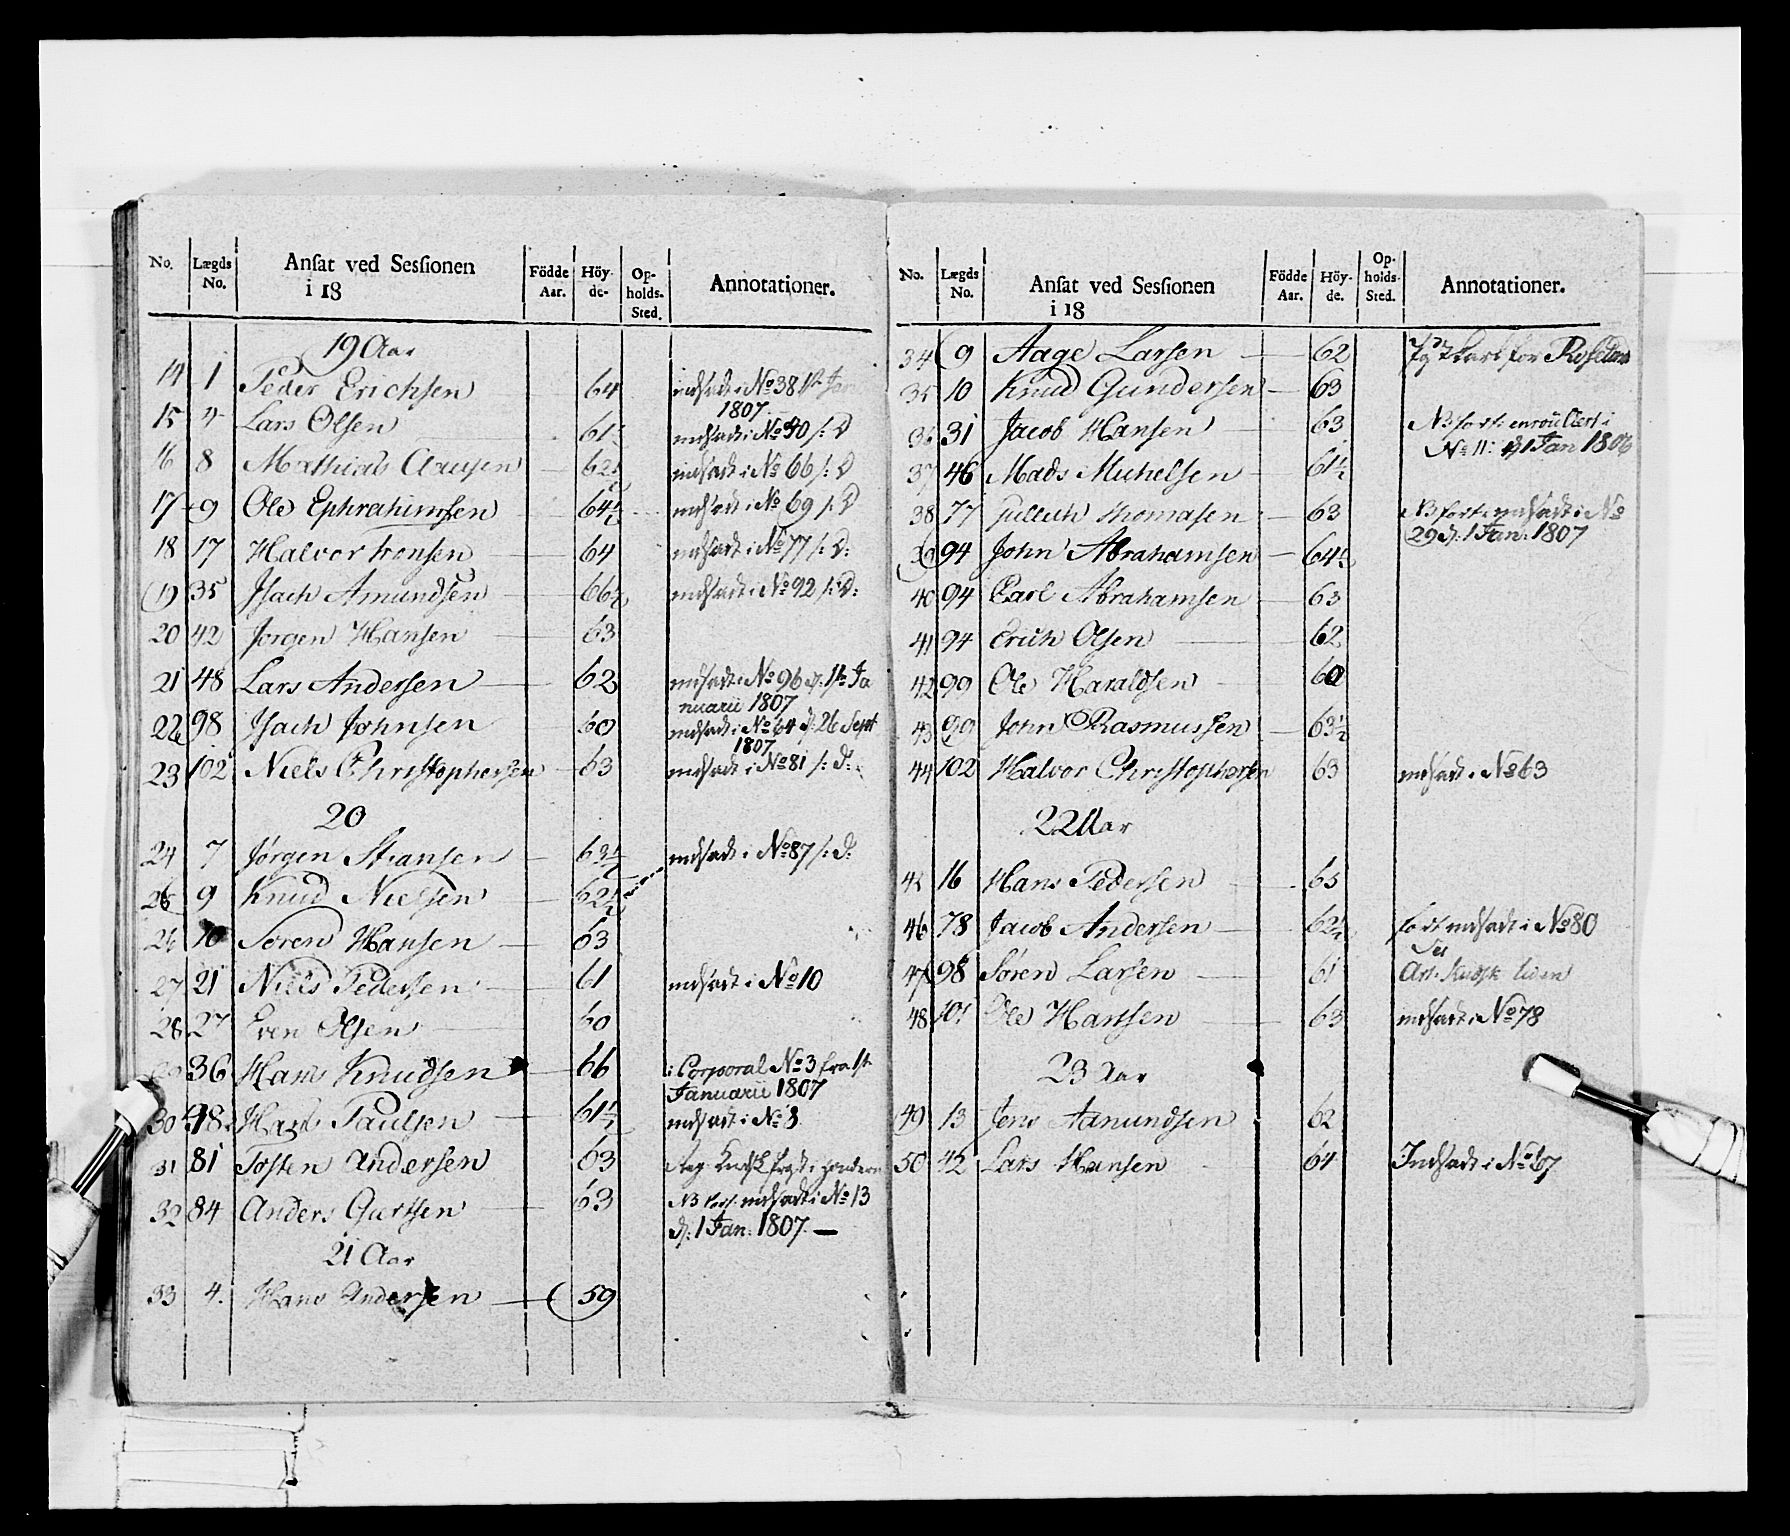 No. Lægds No. Ansat ved Sessionen i 18 Födde Aar. Höy-de. Op-holds-Sted. Annotationer.
19 Aar
14 1 Peder Erichsen 64 indsadt i No 38 1st Jan
1807
15 4 Lars Olsen 61½ indsadt i No 40 s: D
16 8 Mathias Clausen 62½ indsadt i No 66 s: D
17 9 Ole Ephrahimsen 64½ indsadt i No 69 s: D
18 17 Halvor Ivensen 64 indsadt i No 77 s: D:
19 35 Isach Amundsen 66½ indsadt i No 92 s: D:
20 42 Jørgen Hansen 63
21 48 Lars Andersen 62 indsadt i No 96 d: 1st Ja
nuarii 1807
22 98 Isach Johnsen 60 indsadt i No 64 d: 26 Sept
1807
23 102 Niels Christophersen 63 indsadt i No 81 s: D:
20
24 7 Jørgen Hansen 63½ indsadt i No 87 s: D:
25 9 Knud Nielsen 62½
26 10 Søren Hansen 63
27 21 Niels Pedersen 61 indsadt i No 10
28 27 Even Olsen 60
29 36 Hans Knudsen 66 i Corporal No 3 fra 1st
Januarii 1807
30 48 Hans Paulsen 61½ indsadt i No 8
31 81 Tosten Andersen 63
32 84 Anders Gurtsen 63 NB fort indsadt i No 13
d: 1 Jan: 1807. —
21 Aar
33 4. Hans Andersen 59
No. Lægds No. Ansat ved Sessionen i 18 Födde Aar. Höy-de. Op-holds-Sted. Annotationer.
34 9 Aage Larsen 62
35 10 Knud Gundersen 63
36 31 Jacob Hansen 63 NB fort: enroullert i
No 11: d 1 Jan 1806
37 46 Mads Michelsen 61½
38 77 Gullich Thomasen 63 NB fort indsadt i No
29 d: 1 Jan: 1807
39 94 John Abrahamsen 64½
40 94 Carl Abrahamsen 63
41 94 Erich Olsen 62
42 90 Ole Haraldsen 60
43 90 John Rasmussen 63½
44 102 Halvor Christophersen 63 indsadt i No 63
22 Aar
45 16 Hans Pedersen 63
46 78 Jacob Andersen 62½ fort indsadt i No 80
47 98 Søren Larsen 61
48 101 Ole Hansen 63 indsadt i No 78
23 Aar
49 13 Jens Aamundsen 62
50 42 Lars Hansen 64 Indsadt i No 67